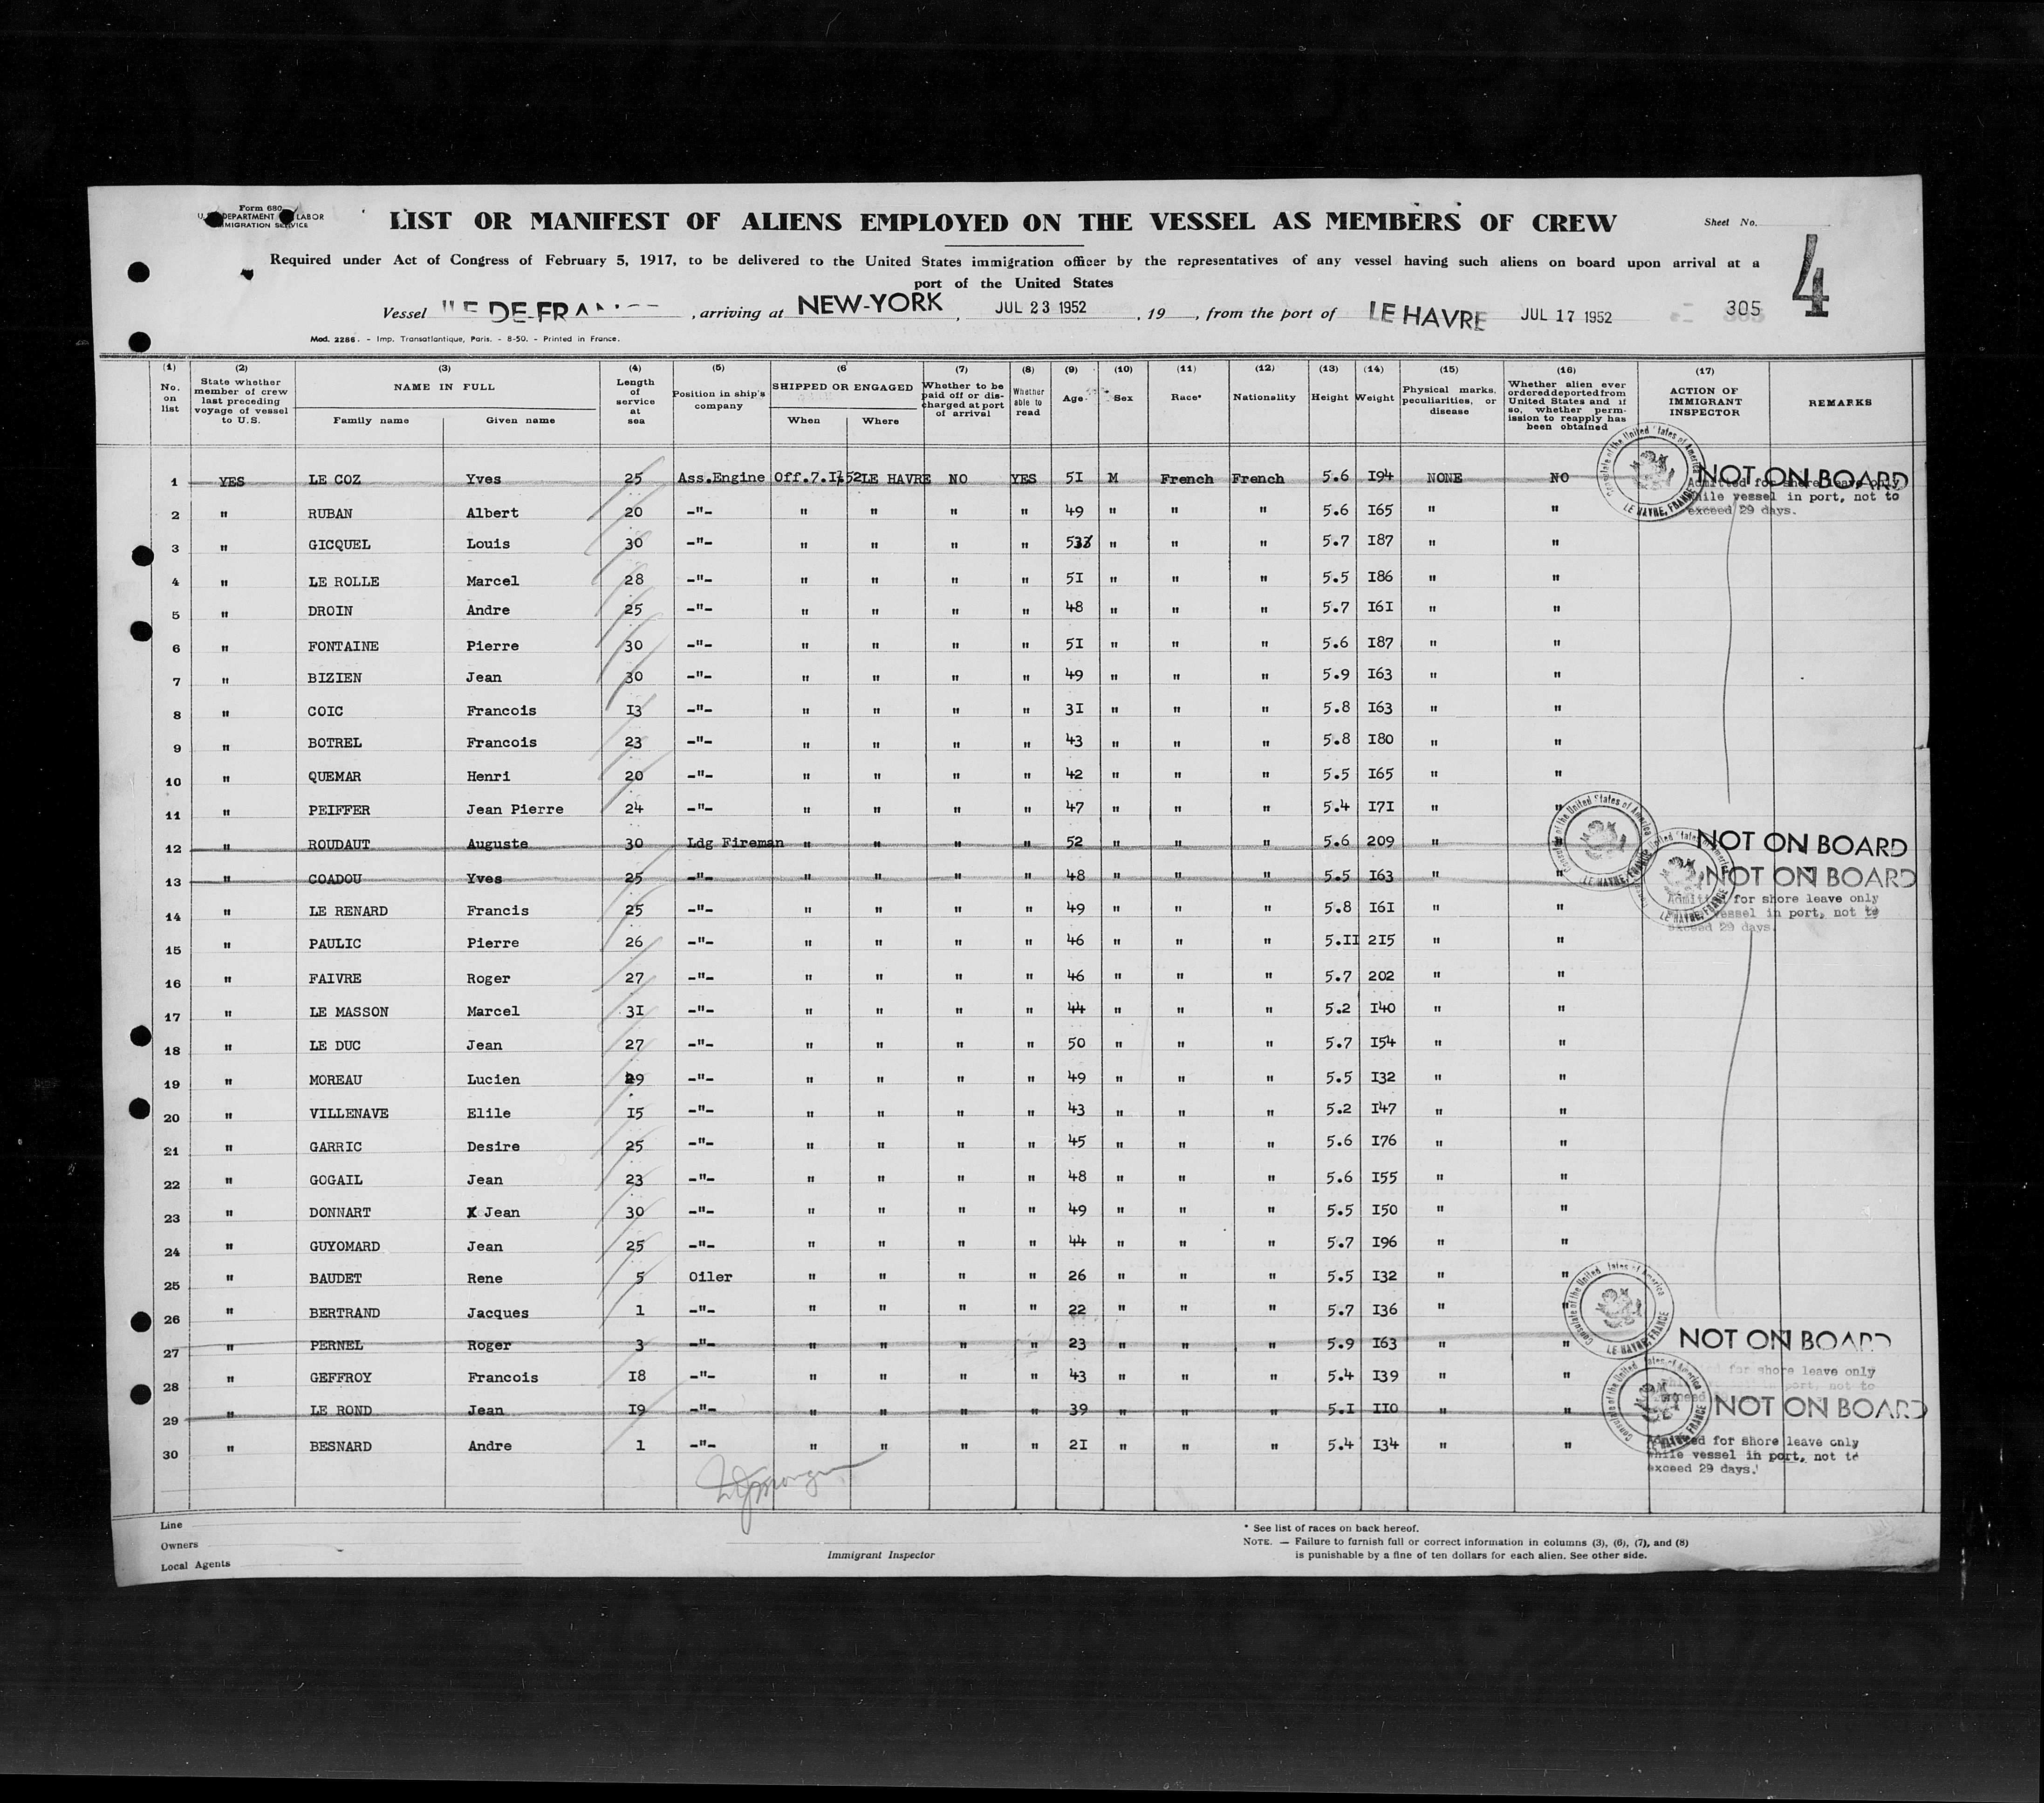 Form 680
U. DEPARTMENT LABOR
IMMIGRATION SERVICE
LIST OR MANIFEST OF ALIENS EMPLOYED ON THE VESSEL AS MEMBERS OF CREW
Sheet No.
4
Required under Act of Congress of February 5, 1917, to be delivered to the United States immigration officer by the representatives of any vessel having such aliens on board upon arrival at a
port of the United States
Vessel ILE DE-FRANCE, arriving at NEW-YORK, JUL 23 1952, 19 , from the port of LE HAVRE JUL 17 1952 305
Mod. 2286. - Imp. Transatlantique, Paris. - 8-50. - Printed in France.
(1) No. on list (2) State whether member of crew last preceding voyage of vessel to U.S. (3) NAME IN FULL Family name Given name (4) Length of service at sea (5) Position in ship's company (6 SHIPPED OR ENGAGED When Where (7) Whether to be paid off or discharged at port of arrival (8) Whether able to read (9) Age (10) Sex (11) Race* (12) Nationality (13) Height (14) Weight (15) Physical marks, peculiarities, or disease (16) Whether alien ever ordered deported from United States and if so, whether permission to reapply has been obtained (17) ACTION OF IMMIGRANT INSPECTOR REMARKS
1 YES LE COZ Yves 25 Ass.Engine Off. 7.I7.52 LE HAVRE NO YES 5I M French French 5.6 I94 NONE NO NOT ON BOARD
Admitted for shore leave only
while vessel in port, not to
exceed 29 days.
2 " RUBAN Albert 20 -"- " " " " 49 " " " 5.6 I65 " "
3 " GICQUEL Louis 30 -"- " " " " 53 " " " 5.7 I87 " "
4 " LE ROLLE Marcel 28 -"- " " " " 5I " " " 5.5 I86 " "
5 " DROIN Andre 25 -"- " " " " 48 " " " 5.7 I6I " "
6 " FONTAINE Pierre 30 -"- " " " " 5I " " " 5.6 I87 " "
7 " BIZIEN Jean 30 -"- " " " " 49 " " " 5.9 I63 " "
8 " COIC Francois I3 -"- " " " " 3I " " " 5.8 I63 " "
9 " BOTREL Francois 23 -"- " " " " 43 " " " 5.8 I80 " "
10 " QUEMAR Henri 20 -"- " " " " 42 " " " 5.5 I65 " "
11 " PEIFFER Jean Pierre 24 -"- " " " " 47 " " " 5.4 I7I " "
12 " ROUDAUT Auguste 30 Ldg Fireman " " " " 52 " " " 5.6 209 " " NOT ON BOARD
13 " COADOU Yves 25 -"- " " " " 48 " " " 5.5 I63 " " NOT ON BOARD
14 " LE RENARD Francis 25 -"- " " " " 49 " " " 5.8 I6I " "
Admitted for shore leave only
while vessel in port, not to
exceed 29 days.
15 " PAULIC Pierre 26 -"- " " " " 46 " " " 5.II 2I5 " "
16 " FAIVRE Roger 27 -"- " " " " 46 " " " 5.7 202 " "
17 " LE MASSON Marcel 3I -"- " " " " 44 " " " 5.2 I40 " "
18 " LE DUC Jean 27 -"- " " " " 50 " " " 5.7 I54 " "
19 " MOREAU Lucien 29 -"- " " " " 49 " " " 5.5 I32 " "
20 " VILLENAVE Elile I5 -"- " " " " 43 " " " 5.2 I47 " "
21 " GARRIC Desire 25 -"- " " " " 45 " " " 5.6 I76 " "
22 " GOGAIL Jean 23 -"- " " " " 48 " " " 5.6 I55 " "
23 " DONNART X Jean 30 -"- " " " " 49 " " " 5.5 I50 " "
24 " GUYOMARD Jean 25 -"- " " " " 44 " " " 5.7 I96 " "
25 " BAUDET Rene 5 Oiler " " " " 26 " " " 5.5 I32 " "
26 " BERTRAND Jacques 1 -"- " " " " 22 " " " 5.7 I36 " "
27 " PERNEL Roger 3 -"- " " " " 23 " " " 5.9 I63 " " NOT ON BOARD
28 " GEFFROY Francois I8 -"- " " " " 43 " " " 5.4 I39 " "
for shore leave only
in port, not to
29 " LE ROND Jean I9 -"- " " " " 39 " " " 5.I II0 " " NOT ON BOARD
30 " BESNARD Andre 1 -"- " " " " 2I " " " 5.4 I34 " "
Admitted for shore leave only
while vessel in port, not to
exceed 29 days.
Consulate of the United States of America
LE HAVRE, FRANCE
Consulate of the United States of America
LE HAVRE, FRANCE
United States of America
LE HAVRE, FRANCE
Consulate of the United States of America
LE HAVRE, FRANCE
Consulate of the United States of America
LE HAVRE, FRANCE
Line
Owners
Local Agents
Immigrant Inspector
* See list of races on back hereof.
NOTE. — Failure to furnish full or correct information in columns (3), (6), (7), and (8)
is punishable by a fine of ten dollars for each alien. See other side.